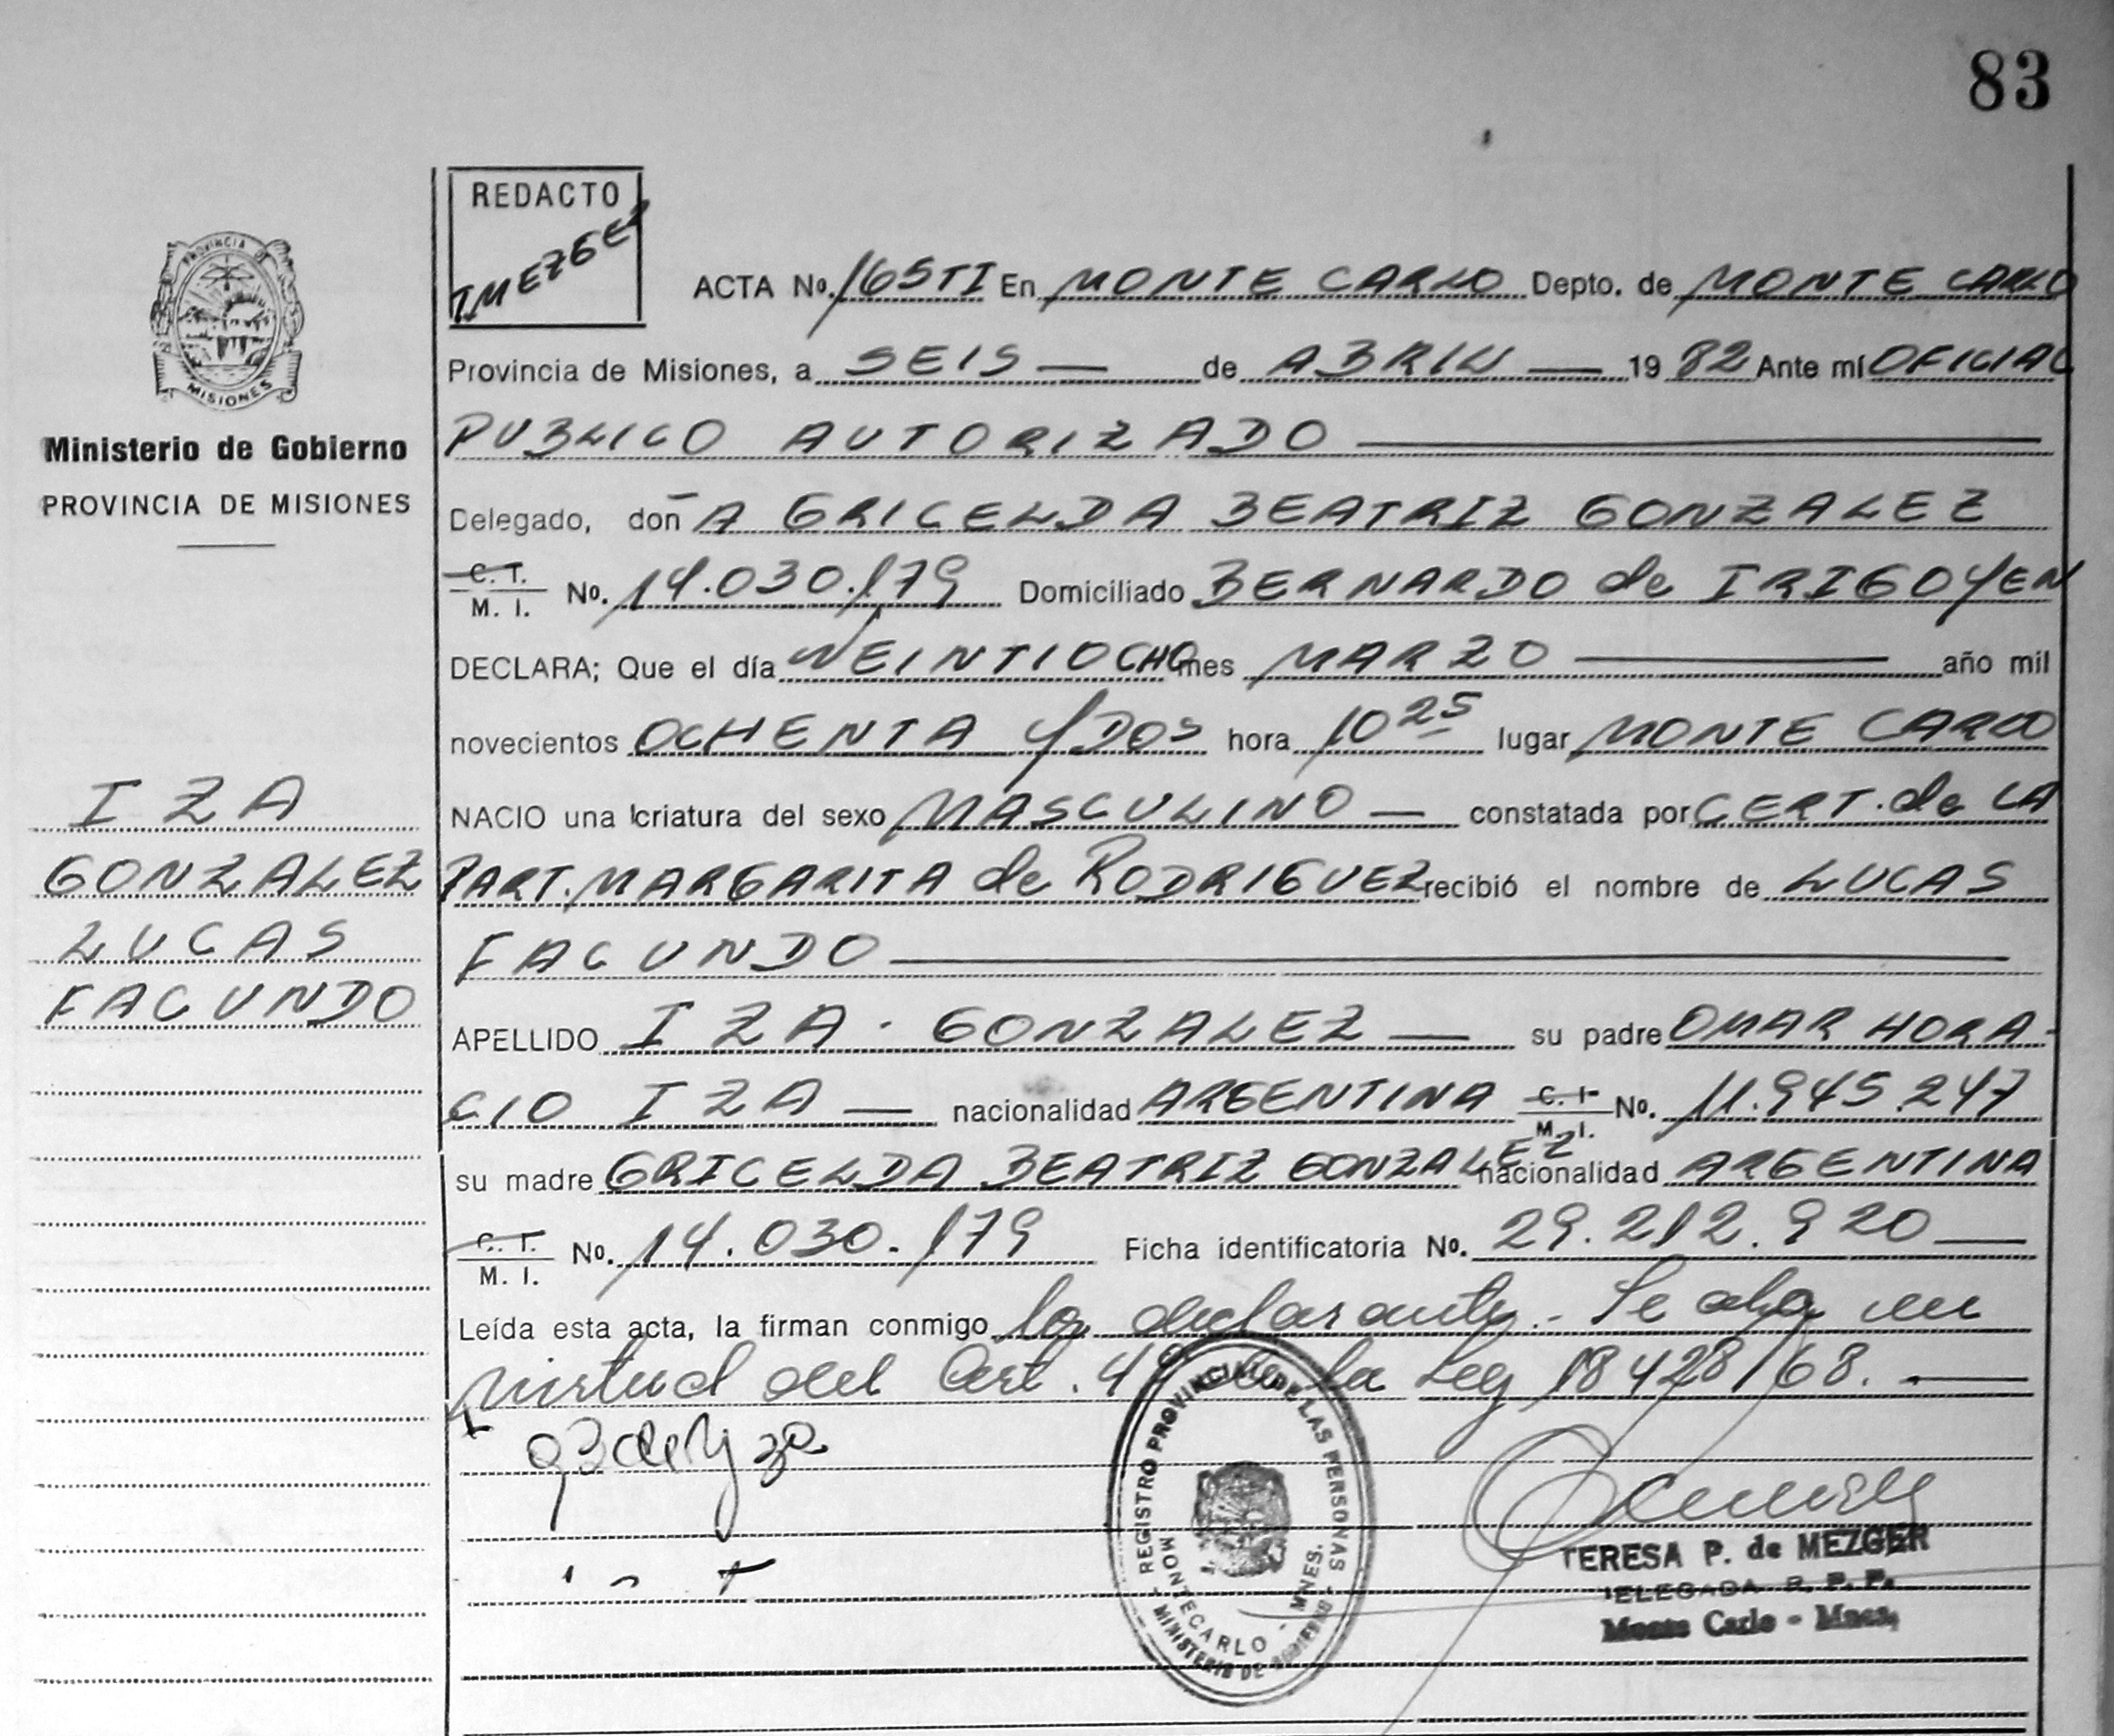 83
REDACTO
T.MEZGER
ACTA No. 165TI En MONTE CARLO Depto. de MONTE CARLO
Provincia de Misiones, a SEIS — de ABRIL — 1982 Ante mí OFICIAL
PUBLICO AUTORIZADO
Delegado, doñA GRICELDA BEATRIZ GONZALEZ
C. I.
M. I. No. 14.030.179 Domiciliado BERNARDO de IRIGOYEN
DECLARA; Que el día VEINTIOCHO mes MARZO — año mil
novecientos OCHENTA y DOS hora 10 25 lugar MONTE CARLO
NACIO una criatura del sexo MASCULINO — constatada por CERT. de LA
PART. MARGARITA de RODRIGUEZ recibió el nombre de LUCAS
FACUNDO
APELLIDO IZA · GONZALEZ — su padre OMAR HORA-
CIO IZA — nacionalidad ARGENTINA C. I. M. I. No. 11.945.247
su madre GRICELDA BEATRIZ GONZALEZ nacionalidad ARGENTINA
C. I.
M. I. No. 14.030.179 Ficha identificatoria No. 29.212.920
Leída esta acta, la firman conmigo la declarante.- Se en
virtud del Art. de la Ley 18428/68.
PROVINCIA DE
MISIONES
Ministerio de Gobierno
PROVINCIA DE MISIONES
IZA
GONZALEZ
LUCAS
FACUNDO
REGISTRO PROVINCIAL DE LAS PERSONAS
MONTECARLO - MNES.
MINISTERIO DE GOBIERNO
TERESA P. de MEZGER
DELEGADA R. P. P.
Monte Carlo - Mnes.